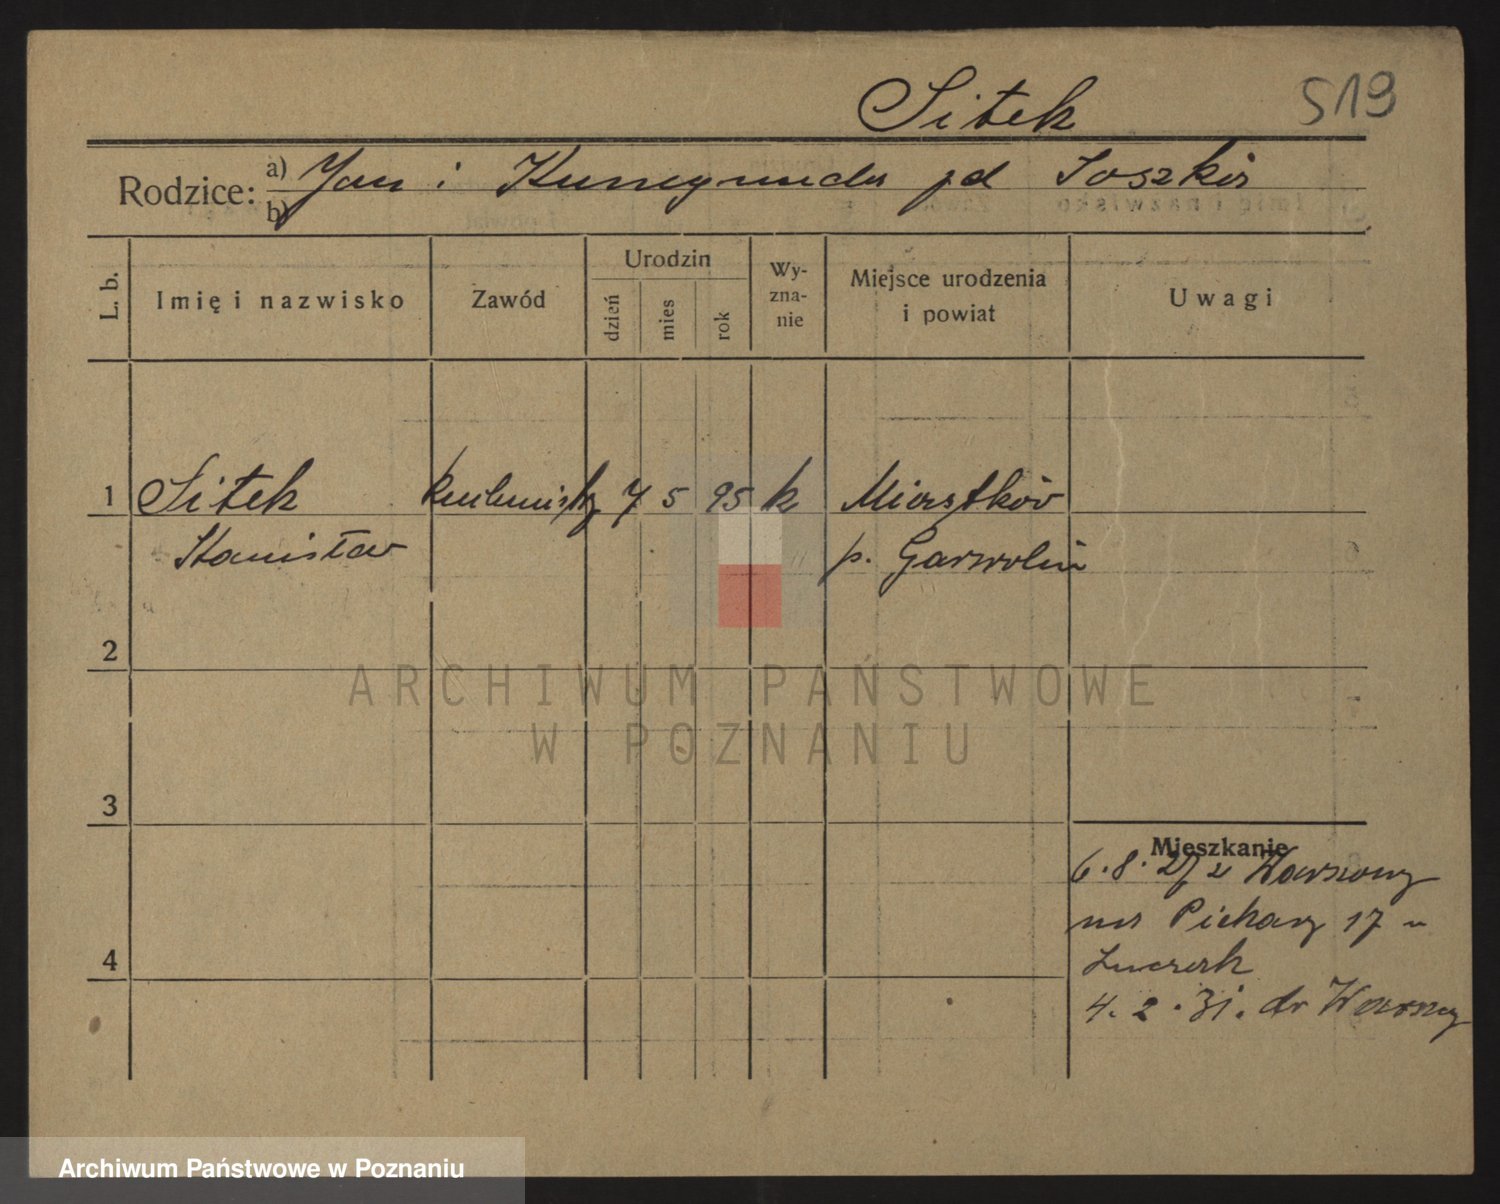 Sitek 519
Rodzice: a) Jan i Kunegunda pd Soszka
b)
L. b. Imię i nazwisko Zawód Urodzin dzień mies rok Wy-zna-nie Miejsce urodzenia i powiat Uwagi
1 Sitek 7 5 95 k Miastków
Stanisław p. Garwolin
2
3
4
Mieszkanie
6.8.27 z Warszawy
na Piekary 17 u
4.2.31. do Warszawy
ARCHIWUM PAŃSTWOWE
W POZNANIU
Archiwum Państwowe w Poznaniu